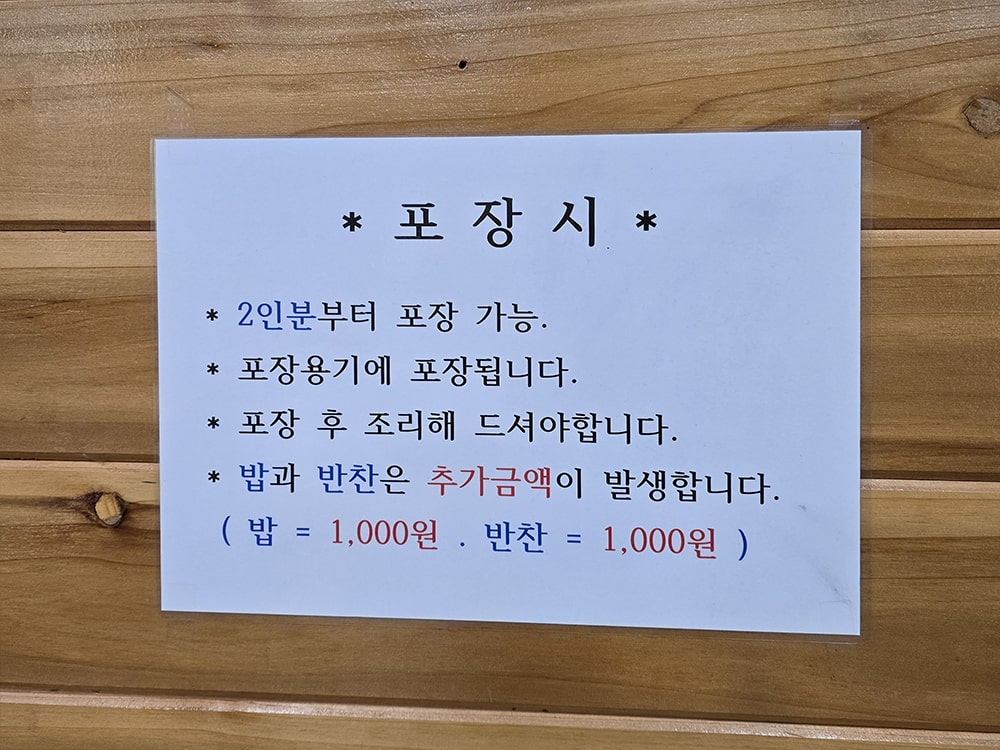 * 포 장 시 *
* 2인분부터 포장 가능.
* 포장용기에 포장됩니다.
* 포장 후 조리해 드셔야합니다.
* 밥과 반찬은 추가금액이 발생합니다.
( 밥 = 1,000원 . 반찬 = 1,000원 )